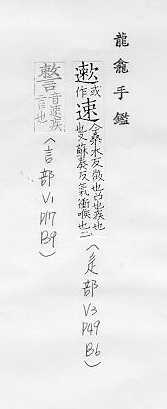 龍龕手鑑
遫或作速今桑木反徵也召也疾也
也又蘇奏反氣衝喉也二
(辵部 V3 P49 B6)
音速疾言也
(言部 V1 P17 B9)